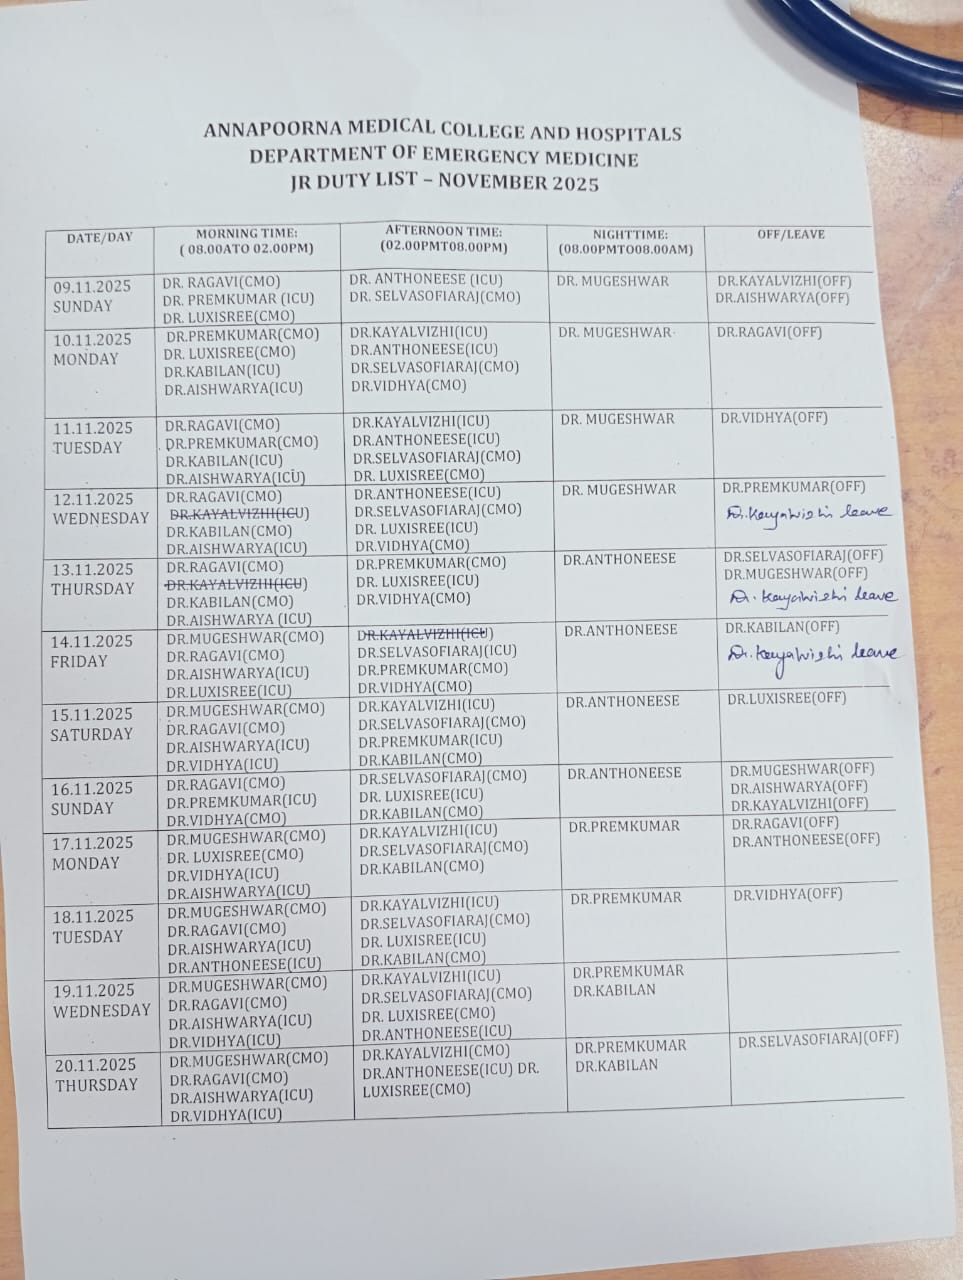 ANNAPOORNA MEDICAL COLLEGE AND HOSPITALS
DEPARTMENT OF EMERGENCY MEDICINE
JR DUTY LIST – NOVEMBER 2025
DATE/DAY
MORNING TIME:
( 08.00ATO 02.00PM)
AFTERNOON TIME:
(02.00PMT08.00PM)
NIGHTTIME:
(08.00PMTO08.00AM)
OFF/LEAVE
09.11.2025
SUNDAY
DR. RAGAVI(CMO)
DR. PREMKUMAR (ICU)
DR. LUXISREE(CMO)
DR. ANTHONEESE (ICU)
DR. SELVASOFIARAJ(CMO)
DR. MUGESHWAR
DR.KAYALVIZHI(OFF)
DR.AISHWARYA(OFF)
10.11.2025
MONDAY
DR.PREMKUMAR(CMO)
DR. LUXISREE(CMO)
DR.KABILAN(ICU)
DR.AISHWARYA(ICU)
DR.KAYALVIZHI(ICU)
DR.ANTHONEESE(ICU)
DR.SELVASOFIARAJ(CMO)
DR.VIDHYA(CMO)
DR. MUGESHWAR
DR.RAGAVI(OFF)
11.11.2025
TUESDAY
DR.RAGAVI(CMO)
DR.PREMKUMAR(CMO)
DR.KABILAN(ICU)
DR.AISHWARYA(ICU)
DR.KAYALVIZHI(ICU)
DR.ANTHONEESE(ICU)
DR.SELVASOFIARAJ(CMO)
DR. LUXISREE(CMO)
DR. MUGESHWAR
DR.VIDHYA(OFF)
12.11.2025
WEDNESDAY
DR.RAGAVI(CMO)
DR.KAYALVIZHI(ICU)
DR.KABILAN(CMO)
DR.AISHWARYA(ICU)
DR.ANTHONEESE(ICU)
DR.SELVASOFIARAJ(CMO)
DR. LUXISREE(ICU)
DR.VIDHYA(CMO)
DR. MUGESHWAR
DR.PREMKUMAR(OFF)
Dr.Kayalvizhi leave
13.11.2025
THURSDAY
DR.RAGAVI(CMO)
DR.KAYALVIZHI(ICU)
DR.KABILAN(CMO)
DR.AISHWARYA (ICU)
DR.PREMKUMAR(CMO)
DR. LUXISREE(ICU)
DR.VIDHYA(CMO)
DR.ANTHONEESE
DR.SELVASOFIARAJ(OFF)
DR.MUGESHWAR(OFF)
Dr.Kayalvizhi leave
14.11.2025
FRIDAY
DR.MUGESHWAR(CMO)
DR.RAGAVI(CMO)
DR.AISHWARYA(ICU)
DR.LUXISREE(ICU)
DR.KAYALVIZHI(ICU)
DR.SELVASOFIARAJ(ICU)
DR.PREMKUMAR(CMO)
DR.VIDHYA(CMO)
DR.ANTHONEESE
DR.KABILAN(OFF)
Dr.Kayalvizhi leave
15.11.2025
SATURDAY
DR.MUGESHWAR(CMO)
DR.RAGAVI(CMO)
DR.AISHWARYA(ICU)
DR.VIDHYA(ICU)
DR.KAYALVIZHI(ICU)
DR.SELVASOFIARAJ(CMO)
DR.PREMKUMAR(ICU)
DR.KABILAN(CMO)
DR.ANTHONEESE
DR.LUXISREE(OFF)
16.11.2025
SUNDAY
DR.RAGAVI(CMO)
DR.PREMKUMAR(ICU)
DR.VIDHYA(CMO)
DR.SELVASOFIARAJ(CMO)
DR. LUXISREE(ICU)
DR.KABILAN(CMO)
DR.ANTHONEESE
DR.MUGESHWAR(OFF)
DR.AISHWARYA(OFF)
DR.KAYALVIZHI(OFF)
17.11.2025
MONDAY
DR.MUGESHWAR(CMO)
DR. LUXISREE(CMO)
DR.VIDHYA(ICU)
DR.AISHWARYA(ICU)
DR.KAYALVIZHI(ICU)
DR.SELVASOFIARAJ(CMO)
DR.KABILAN(CMO)
DR.PREMKUMAR
DR.RAGAVI(OFF)
DR.ANTHONEESE(OFF)
18.11.2025
TUESDAY
DR.MUGESHWAR(CMO)
DR.RAGAVI(CMO)
DR.AISHWARYA(ICU)
DR.ANTHONEESE(ICU)
DR.KAYALVIZHI(ICU)
DR.SELVASOFIARAJ(CMO)
DR. LUXISREE(ICU)
DR.KABILAN(CMO)
DR.PREMKUMAR
DR.VIDHYA(OFF)
19.11.2025
WEDNESDAY
DR.MUGESHWAR(CMO)
DR.RAGAVI(CMO)
DR.AISHWARYA(ICU)
DR.VIDHYA(ICU)
DR.KAYALVIZHI(ICU)
DR.SELVASOFIARAJ(CMO)
DR. LUXISREE(CMO)
DR.ANTHONEESE(ICU)
DR.PREMKUMAR
DR.KABILAN
20.11.2025
THURSDAY
DR.MUGESHWAR(CMO)
DR.RAGAVI(CMO)
DR.AISHWARYA(ICU)
DR.VIDHYA(ICU)
DR.KAYALVIZHI(CMO)
DR.ANTHONEESE(ICU) DR.
LUXISREE(CMO)
DR.PREMKUMAR
DR.KABILAN
DR.SELVASOFIARAJ(OFF)